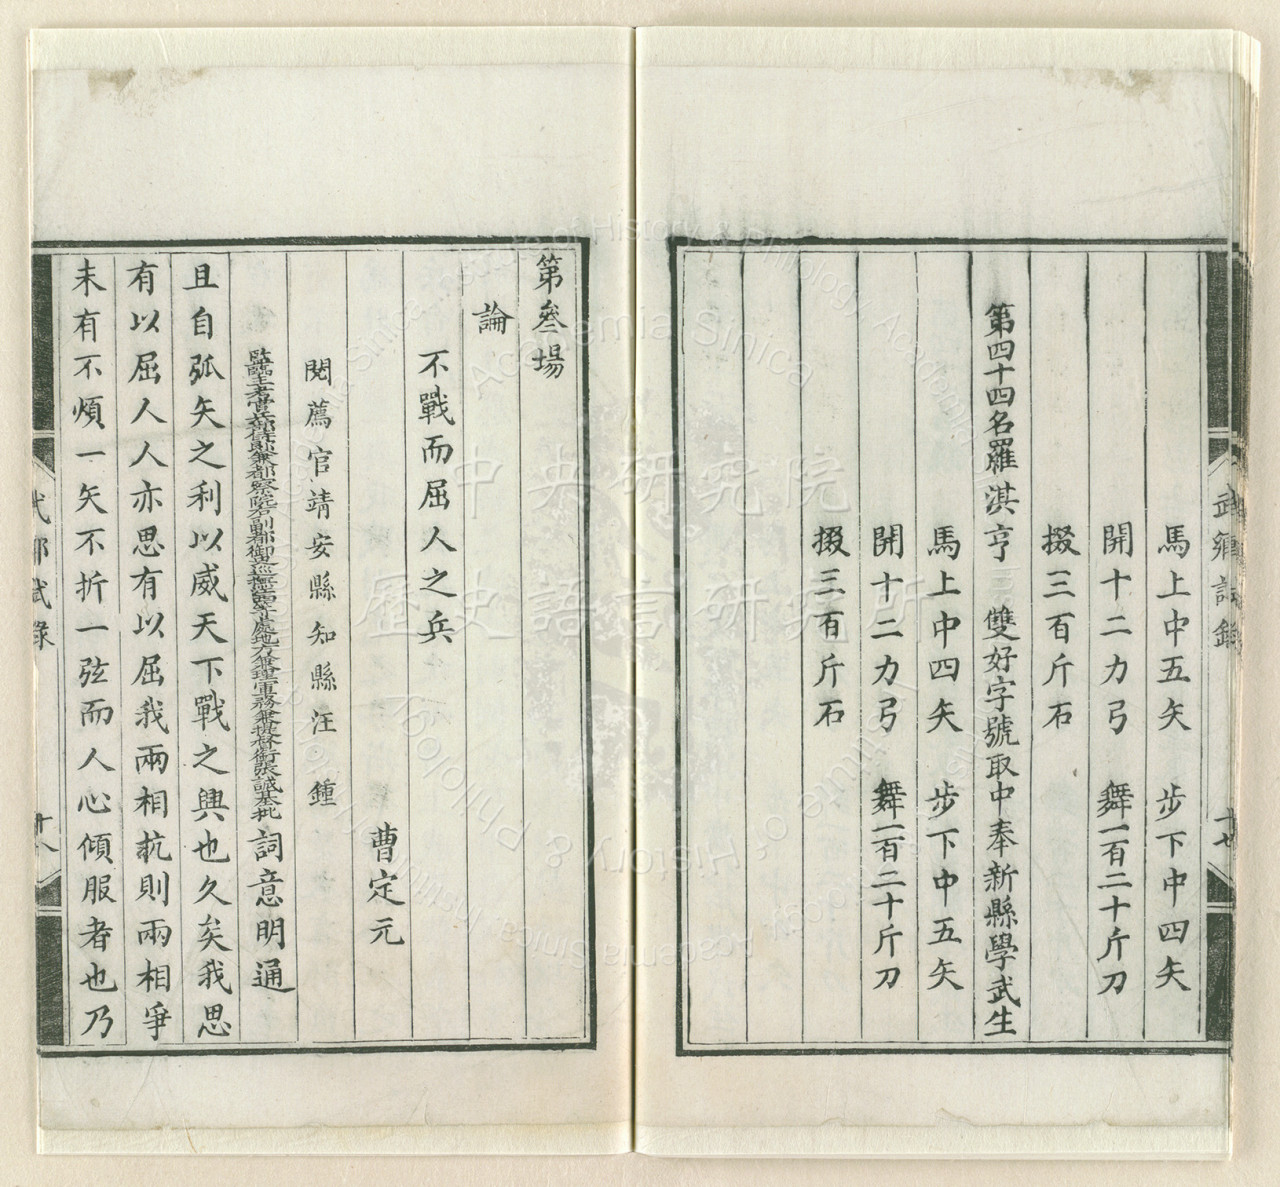 武鄉試錄
十七
馬上中五矢　步下中四矢
開十二力弓　舞一百二十斤刀
掇三百斤石
第四十四名羅淇亨　雙好字號取中奉新縣學武生
馬上中四矢　步下中五矢
開十二力弓　舞一百二十斤刀
掇三百斤石
第叄場
論
不戰而屈人之兵
曹定元
閱薦官靖安縣知縣汪　鍾
監臨主考官兵部侍郎兼都察院右副都御史巡撫江西等處地方兼理軍務兼提督銜張誠基批　詞意明通
且自弧矢之利以威天下戰之興也久矣我思
有以屈人人亦思有以屈我兩相抗則兩相爭
未有不煩一矢不折一弦而人心傾服者也乃
武鄉試錄
十八
中央研究院
歷史語言研究所
Institute of History & Philology, Academia Sinica